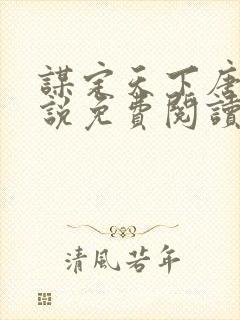 謀定天下唐
說免費閱讀
清風若年